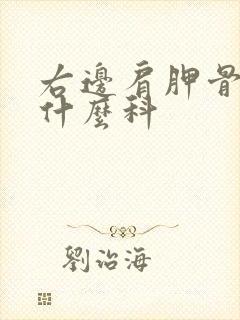 右邊肩胛骨
什麼科
劉治海